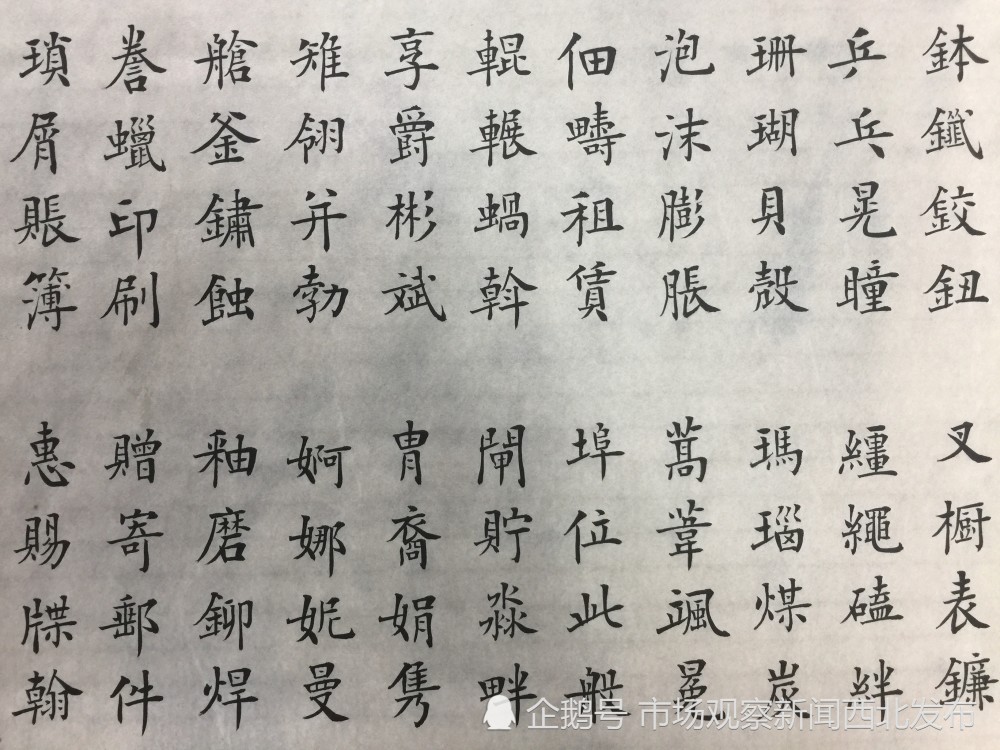 鉢鑯鉸鈕
乒乓晃瞳
珊瑚貝殼
泡沫膨脹
佃疇租賃
輥輾蝸斡
享爵彬斌
雉翎并勃
艙釜鏽蝕
誊蠟印刷
瑣屑賬簿
叉橱表鐮
繮繩磕絆
瑪瑙煤炭
蒿葦颯
埠位此
閘貯淼畔
胄裔娟隽
婀娜妮曼
釉磨鉚焊
贈寄郵件
惠賜牒翰
企鹅号 市场观察新闻西北发布